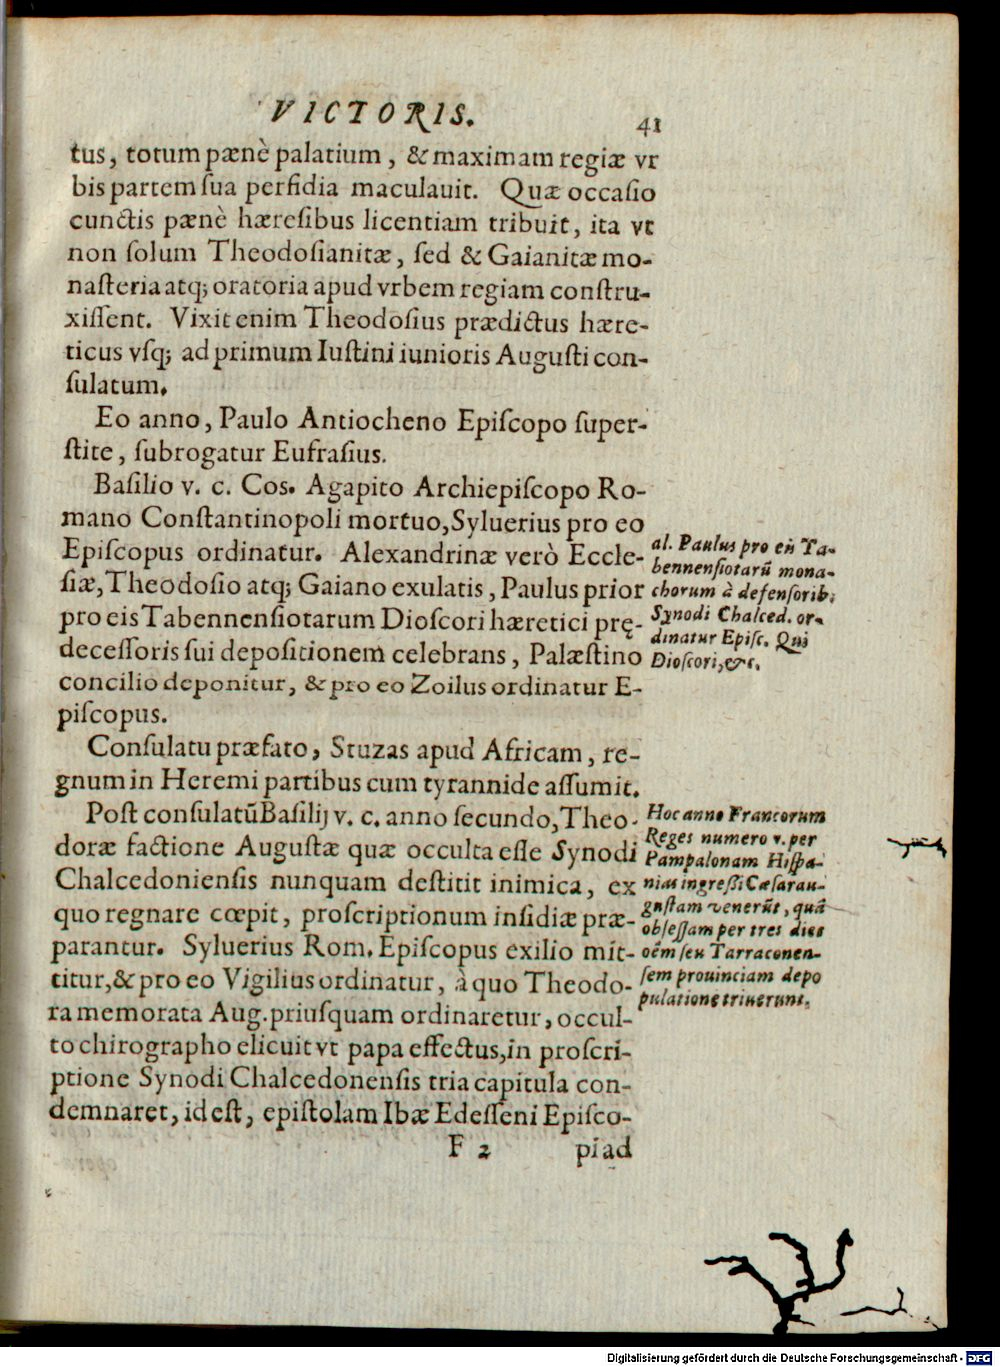 VICTORIS.
41
tus, totum pænè palatium, & maximam regiæ vr
bis partem ſua perfidia maculauit. Quæ occaſio
cunctis pænè hæreſibus licentiam tribuit, ita vt
non ſolum Theodoſianitæ, ſed & Gaianitæ mo-
naſteria atq; oratoria apud vrbem regiam conſtru-
xiſſent. Vixit enim Theodoſius prædictus hære-
ticus vſq; ad primum Iuſtini iunioris Auguſti con-
ſulatum.
Eo anno, Paulo Antiocheno Epiſcopo ſuper-
ſtite, ſubrogatur Eufraſius.
Baſilio v. c. Cos. Agapito Archiepiſcopo Ro-
mano Conſtantinopoli mortuo, Syluerius pro eo
Epiſcopus ordinatur. Alexandrinæ verò Eccle-
ſiæ, Theodoſio atq; Gaiano exulatis, Paulus prior
pro eis Tabennenſiotarum Dioſcori hæretici prę-
deceſſoris ſui depoſitionem celebrans, Palæſtino
concilio deponitur, & pro eo Zoilus ordinatur E-
piſcopus.
al. Paulus pro eii Ta-
bennenſiotarũ mona-
chorum à defenſorib.
Synodi Chalced. or-
dinatur Epiſc. Qui
Dioſcori, &c.
Conſulatu præfato, Stuzas apud Africam, re-
gnum in Heremi partibus cum tyrannide aſſumit.
Poſt conſulatũ Baſilij v. c. anno ſecundo, Theo-
doræ factione Auguſtæ quæ occulta eſſe Synodi
Chalcedonienſis nunquam deſtitit inimica, ex
quo regnare cœpit, proſcriptionum inſidiæ præ-
parantur. Syluerius Rom. Epiſcopus exilio mit-
titur, & pro eo Vigilius ordinatur, à quo Theodo-
ra memorata Aug. priuſquam ordinaretur, occul-
to chirographo elicuit vt papa effectus, in proſcri-
ptione Synodi Chalcedonenſis tria capitula con-
demnaret, id eſt, epiſtolam Ibæ Edeſſeni Epiſco-
Hoc anno Francorum
Reges numero v. per
Pampalonam Hiſpa-
nias ingreſſi Cæſarau-
guſtam venerũt, quã
obſeſſam per tres dies
oẽm ſeu Tarraconen-
ſem prouinciam depo
pulatione triuerunt.
F 2
pi ad
Digitalisierung gefördert durch die Deutsche Forschungsgemeinschaft - DFG